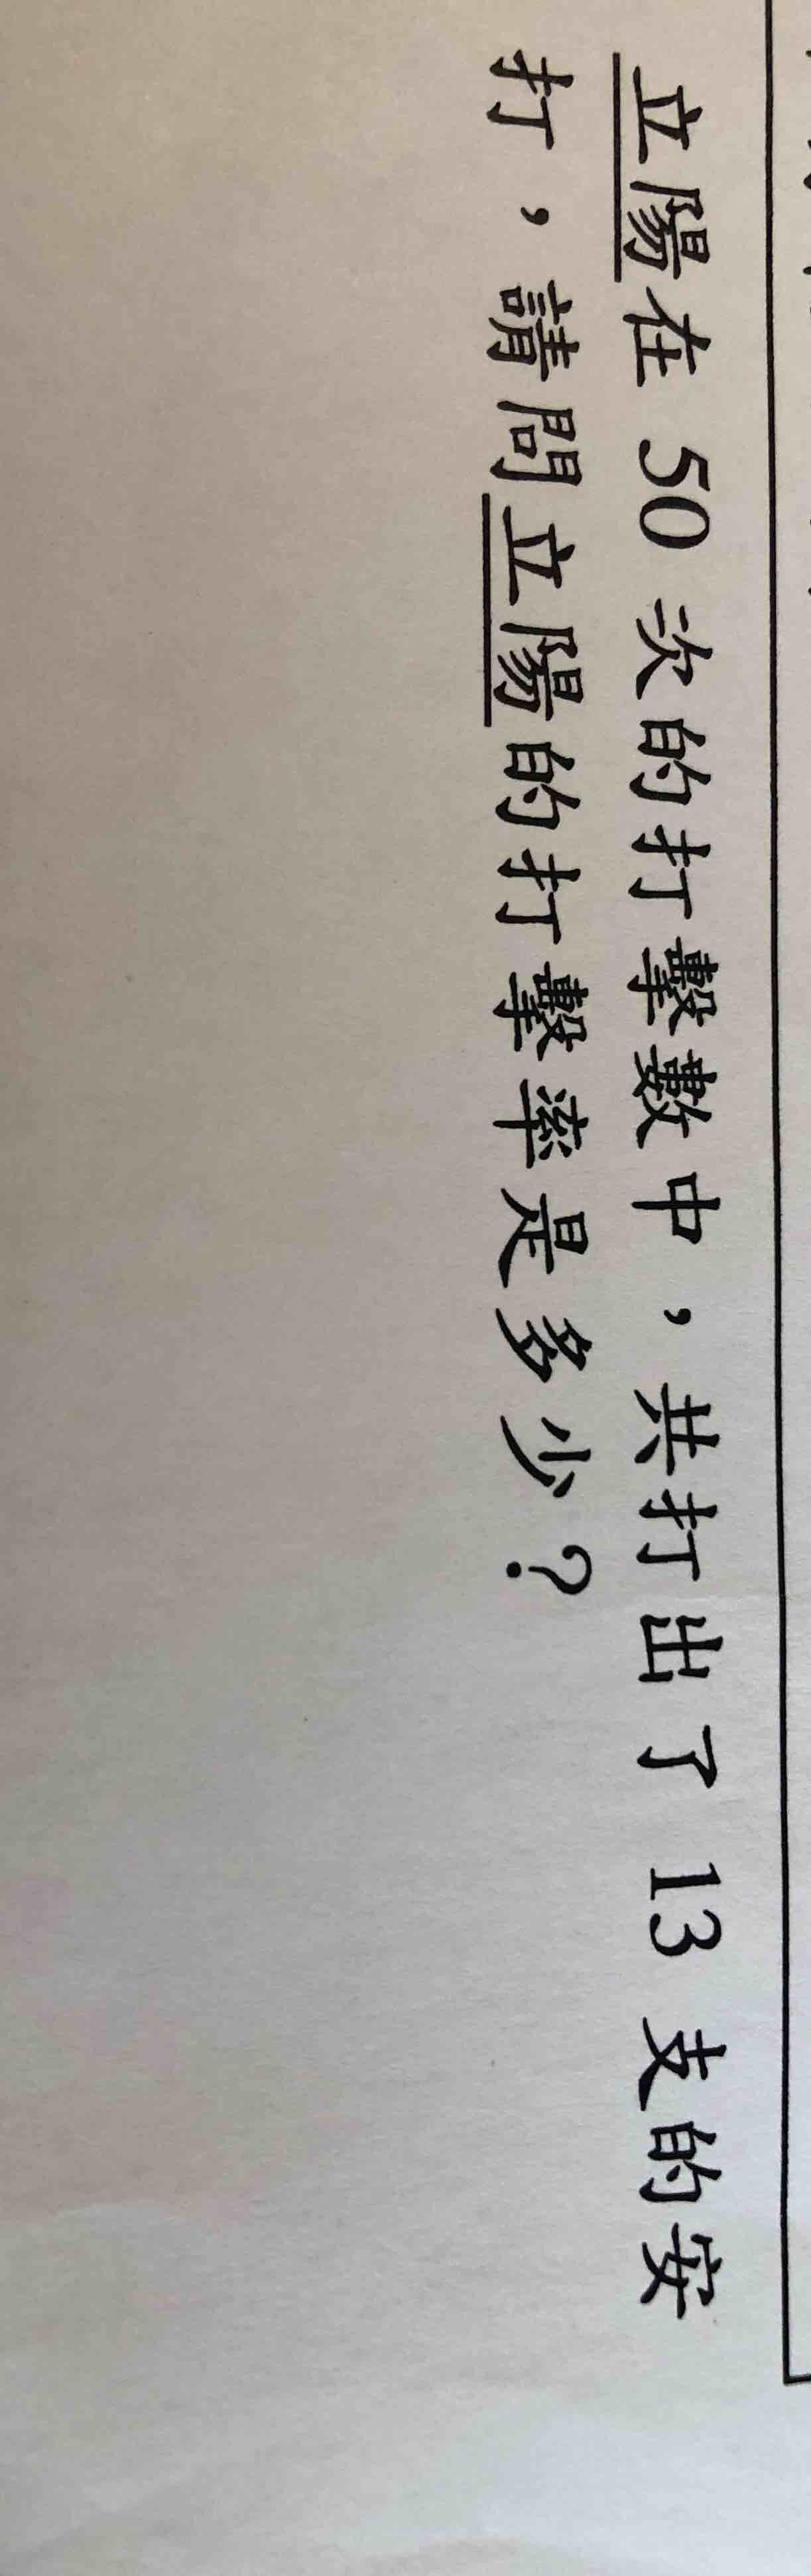 立陽在 50 次的打擊數中，共打出了 13 支的安
打，請問立陽的打擊率是多少？